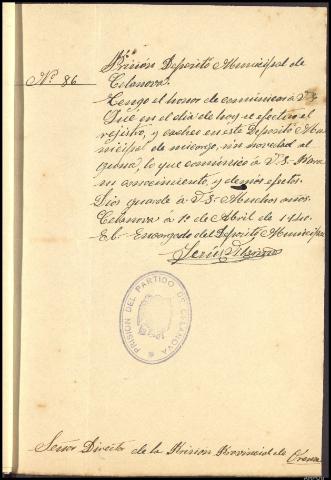 Prisión Deposito Municipal de
Nº 86
Celanova.
Tengo el honor de comunicar á V.S
que en el dia de hoy se efectuo el
registro, y cacheo en este Deposito Mu-
nicipal de mi cargo, sin novedad al
guna, lo que comunico á V.S. Para
su conocimiento, y demas efectos.
Dios guarde á V.S. Muchos años.
Celanova á 1º de Abril de 1940.
El Encargado del Deposito Municipal
Jesús
PRISION DEL PARTIDO DE CELANOVA
Señor Director de la Prisión Provincial de Orense